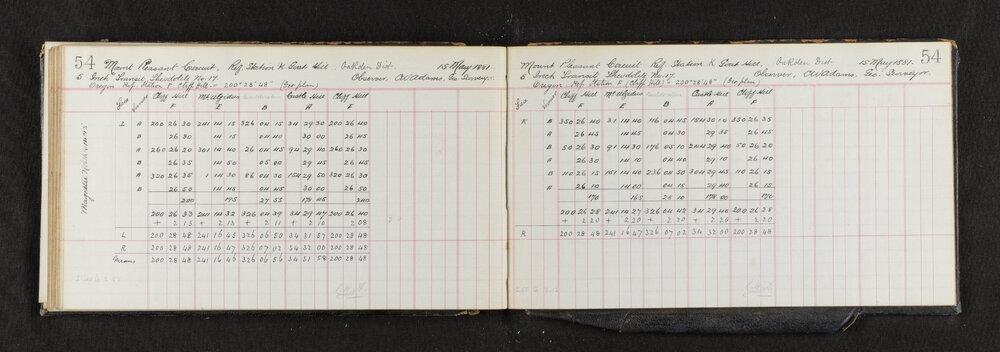 54
Mount Pleasant Circuit, Ref. Station K Goat Hill Oakden Dist. 15 May 1881
5 Inch Transit Theodolite No. 17. Observer, C.W.Adams, Geo. Surveyor.
Origin Ref. Station F (Cliff Hill) = 200° 28' 48" (For plan)
Face Vernier Cliff Hill Mt Egidius Castle Hill Cliff Hill
F E B A F
L A 200 26 30 241 14 15 326 04 15 34 29 30 200 26 40
B 26 30 14 15 04 40 30 00 26 45
A 260 26 20 301 14 40 26 04 45 94 29 40 260 26 30
B 26 35 14 50 05 00 29 45 26 45
A 320 26 35 1 14 30 86 04 30 154 29 50 320 26 30
B 26 50 14 45 04 45 30 00 26 50
200 195 27 55 178 45 240
200 26 33 241 14 32 326 04 39 34 29 47 200 26 40
+ 2 15 + 2 13 + 2 11 + 2 10 + 2 08
L 200 28 48 241 16 45 326 06 50 34 31 57 200 28 48
R 200 28 48 241 16 47 326 07 02 34 32 00 200 28 48
Means 200 28 48 241 16 46 326 06 56 34 31 58 200 28 48
54
Mount Pleasant Circuit Ref. Station K Goat Hill, Oakden Dist 15 May 1881.
5 Inch Transit Theodolite No. 17 Observer, C.W.Adams, Geo. Surveyor.
Origin Ref. Station F (Cliff Hill) = 200° 28' 48" (For plan)
Face Vernier Cliff Hill Mt Egidius Castle Hill Cliff Hill
F E B A F
R B 350 26 40 31 14 40 116 04 45 184 30 10 350 26 35
A 26 45 14 45 04 30 29 35 26 45
B 50 26 30 91 14 30 176 05 10 244 29 40 50 26 20
A 26 30 14 10 04 40 29 10 26 40
B 110 26 15 151 14 40 236 05 50 304 29 45 110 26 15
A 26 10 14 00 04 15 29 40 26 15
170 165 25 10 178 00 170
200 26 28 241 14 27 326 04 42 34 29 40 200 26 28
+ 2 20 + 2 20 + 2 20 + 2 20 + 2 20
R 200 28 48 241 16 47 326 07 02 34 32 00 200 28 48